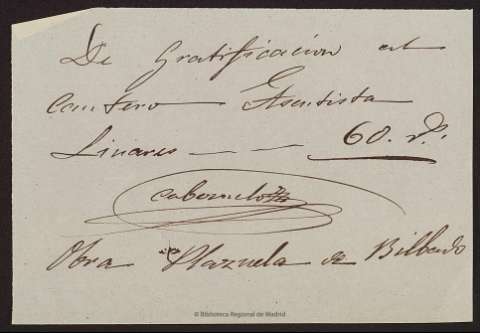 De Gratificacion al
cantero Asentista
Linares — — 60. r.s
Obra Plazuela de Bilbao
© Biblioteca Regional de Madrid